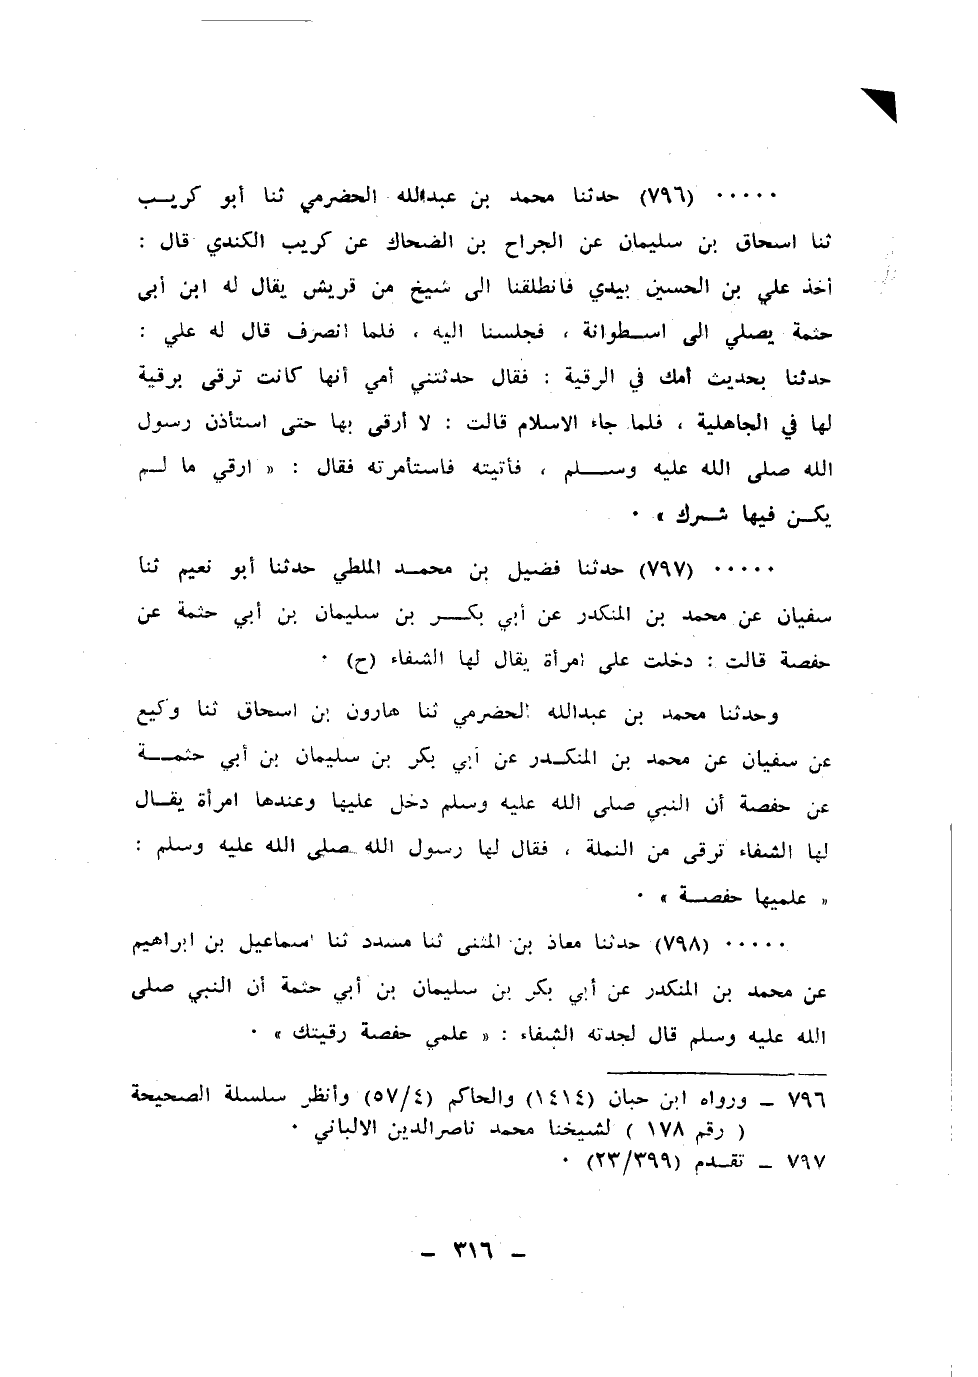 ٠٠٠٠٠ (٧٩٦) حدثنا محمد بن عبدالله الحضرمي ثنا أبو كريب
ثنا اسحاق بن سليمان عن الجراح بن الضحاك عن كريب الكندي قال :
أخذ علي بن الحسين بيدي فانطلقنا الى شيخ من قريش يقال له ابن أبي
حثمة يصلي الى اسطوانة ، فجلسنا اليه ، فلما انصرف قال له علي :
حدثنا بحديث أمك في الرقية : فقال حدثتني أمي أنها كانت ترقى برقية
لها في الجاهلية ، فلما جاء الاسلام قالت : لا أرقى بها حتى استأذن رسول
الله صلى الله عليه وسلم ، فأتيته فاستأمرته فقال : « ارقي ما لم
يكن فيها شرك » ٠
٠٠٠٠٠ (٧٩٧) حدثنا فضيل بن محمد الملطي حدثنا أبو نعيم ثنا
سفيان عن محمد بن المنكدر عن أبي بكر بن سليمان بن أبي حثمة عن
حفصة قالت : دخلت على امرأة يقال لها الشفاء (ح) ٠
وحدثنا محمد بن عبدالله الحضرمي ثنا هارون بن اسحاق ثنا وكيع
عن سفيان عن محمد بن المنكدر عن أبي بكر بن سليمان بن أبي حثمة
عن حفصة أن النبي صلى الله عليه وسلم دخل عليها وعندها امرأة يقال
لها الشفاء ترقى من النملة ، فقال لها رسول الله صلى الله عليه وسلم :
« علميها حفصة » ٠
٠٠٠٠٠ (٧٩٨) حدثنا معاذ بن المثنى ثنا مسدد ثنا اسماعيل بن ابراهيم
عن محمد بن المنكدر عن أبي بكر بن سليمان بن أبي حثمة أن النبي صلى
الله عليه وسلم قال لجدته الشفاء : « علمي حفصة رقيتك » ٠
٧٩٦ ــ ورواه ابن حبان (١٤١٤) والحاكم (٥٧/٤) وأنظر سلسلة الصحيحة
( رقم ١٧٨ ) لشيخنا محمد ناصرالدين الالباني ٠
٧٩٧ ــ تقدم (٢٣/٣٩٩) ٠
ــ ٣١٦ ــ